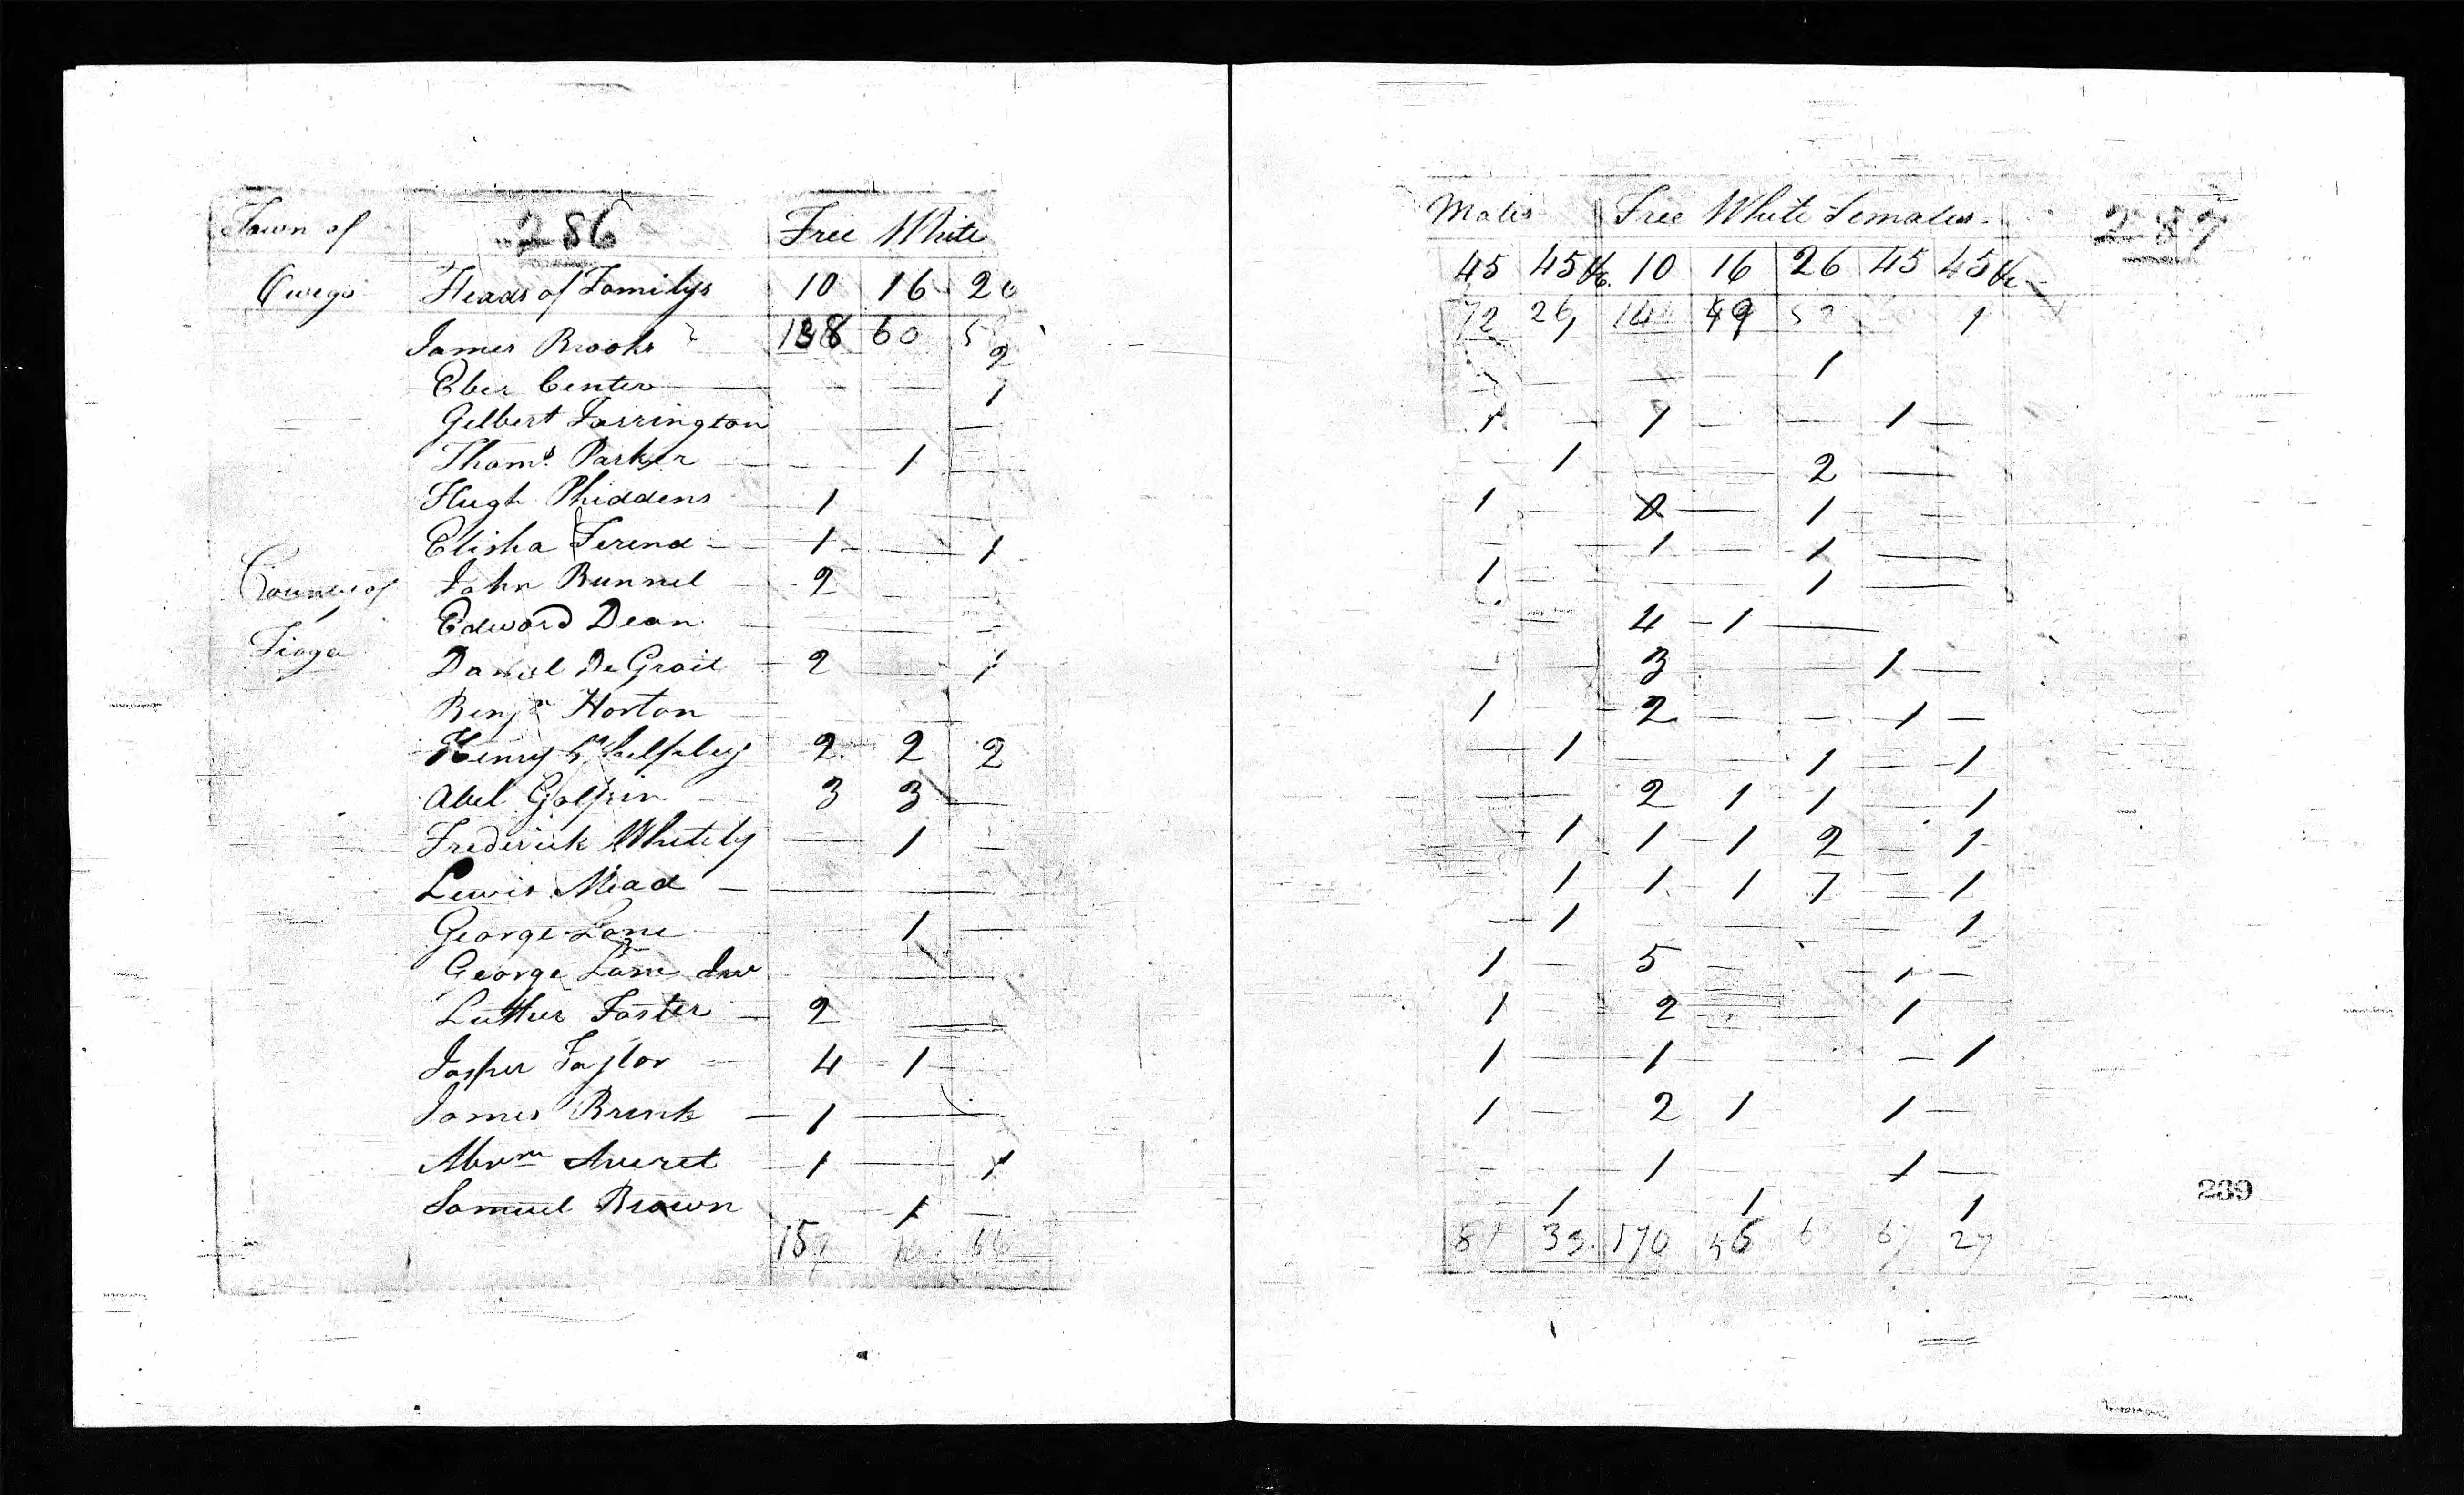 Town of 286 Free White
Owego Heads of Familys 10 16 26
138 60
James Brooks 2
Eber Center 1
Gilbert Farrington
Thoms Parker 1
Hugh Phiddens 1
Elisha Ferend 1 1
County of John Bunnel 2
Edward Dean
Tioga Daniel De Grait 2 1
Benjn Horton
Henry 2 2 2
Abel Galpin 3 3
Frederick Whitely 1
Lewis Mead
George Lane 1
George Lane Jnr
Luther Foster 2
Jasper Taylor 4 1
James Brink 1
Abrm Averet 1 1
Samuel Brown 1
157 66
Males Free White Females 287
45 45 &c 10 16 26 45 45 &c
72 26 49 1
1
1 1 1
1 2
1 1
1 1
1 1
4 1
3 1
1 2 1
1 1 1
2 1 1 1
1 1 1 2 1
1 1 1 1 1
1 1
1 5 1
1 2 1
1 1 1
1 2 1 1
1 1
1 1 1
81 33 170 56 67 27
239